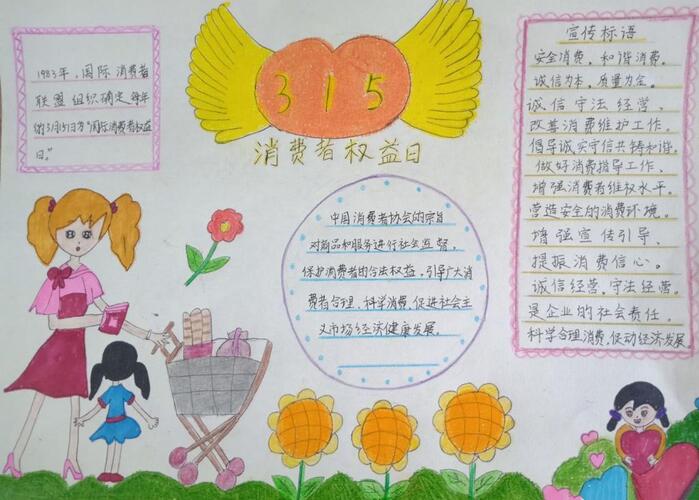 1983年,国际消费者
联盟组织确定每年
的3月15日为"国际消费者权益
日。
315
消费者权益日
中国消费者协会的宗旨
对商品和服务进行社会监督,
保护消费者的合法权益,引导广大消
费者合理、科学消费,促进社会主
义市场经济健康发展。
宣传标语
安全消费,和谐消费。
诚信为本,质量为全。
诚信守法经营、
改善消费维护工作。
倡导诚实守信共铸和谐。
做好消费指导工作、
增强消费者维权水平。
营造安全的消费环境。
增强宣传引导、
提振消费信心。
诚信经营,守法经营。
是企业的社会责任。
科学合理消费,促动经济发展